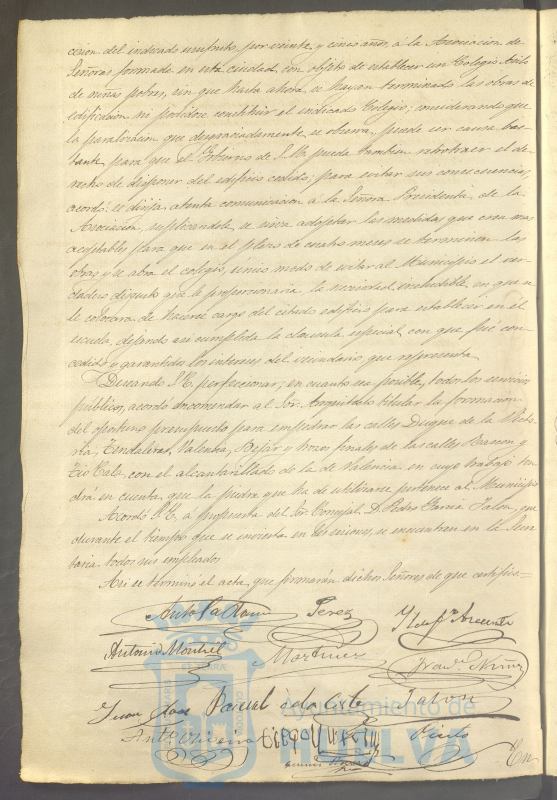 cesion del indicado usufruto por veinte y cinco años, á la Asociacion de
Señoras formada en esta ciudad, con objeto de establecer un Colegio Asilo
de niñas pobres, sin que hasta ahora se hayan terminado las obras de
edificacion ni podidose constituir el indicado Colegio; considerando que
la paralizacion que desgraciadamente se observa, puede ser causa bas-
tante para que el Gobierno de S. M. pueda tambien retrotraer el de-
recho de disponer del edificio cedido; para evitar sus consecuencias,
acordó se dirija atenta comunicacion á la Señora Presidenta de la
Asociacion, suplicandole se sirva adoptar las medidas que crea mas
aceptables para que en el plazo de cuatro meses se terminen las
obras y se abra el colegio, único modo de evitar al Municipio el ver-
dadero disgusto que le proporcionaria la necesidad ineludible en que se
le colocara de hacerse cargo del citado edificio para establecer en él
escuela, dejando asi cumplida la clausula especial con que fué con-
cedido y garantidos los intereses del vecindario que representa.
Deseando S. E. perfeccionar, en cuanto sea posible, todos los servicios
públicos, acordó encomendar al Sor. Arquitecto titular la formacion
del oportuno presupuesto para empedrar las calles Duque de la Victo-
ria, Tendaleras, Valencia, Bejar y trozos finales de las calles Rascon y
Tio Cala con el alcantarillado de la de Valencia en cuyo trabajo ten-
drá en cuenta que la piedra que ha de utilizarse pertenece al Municipio
Acordó S. E. á propuesta del Sor. Concejal D. Pedro Garcia Jalon, que
durante el tiempo que se invierta en las sesiones, se encuentren en la Secre-
taria todos sus empleados
Asi se terminó el acta, que firmarán dichos Señores de que certifico=
Perez
Antonio Montiel Martinez Nuñez
Juan José Pascual de la Corte Jalon
Pinto
En
Ayuntamiento de
HUELVA